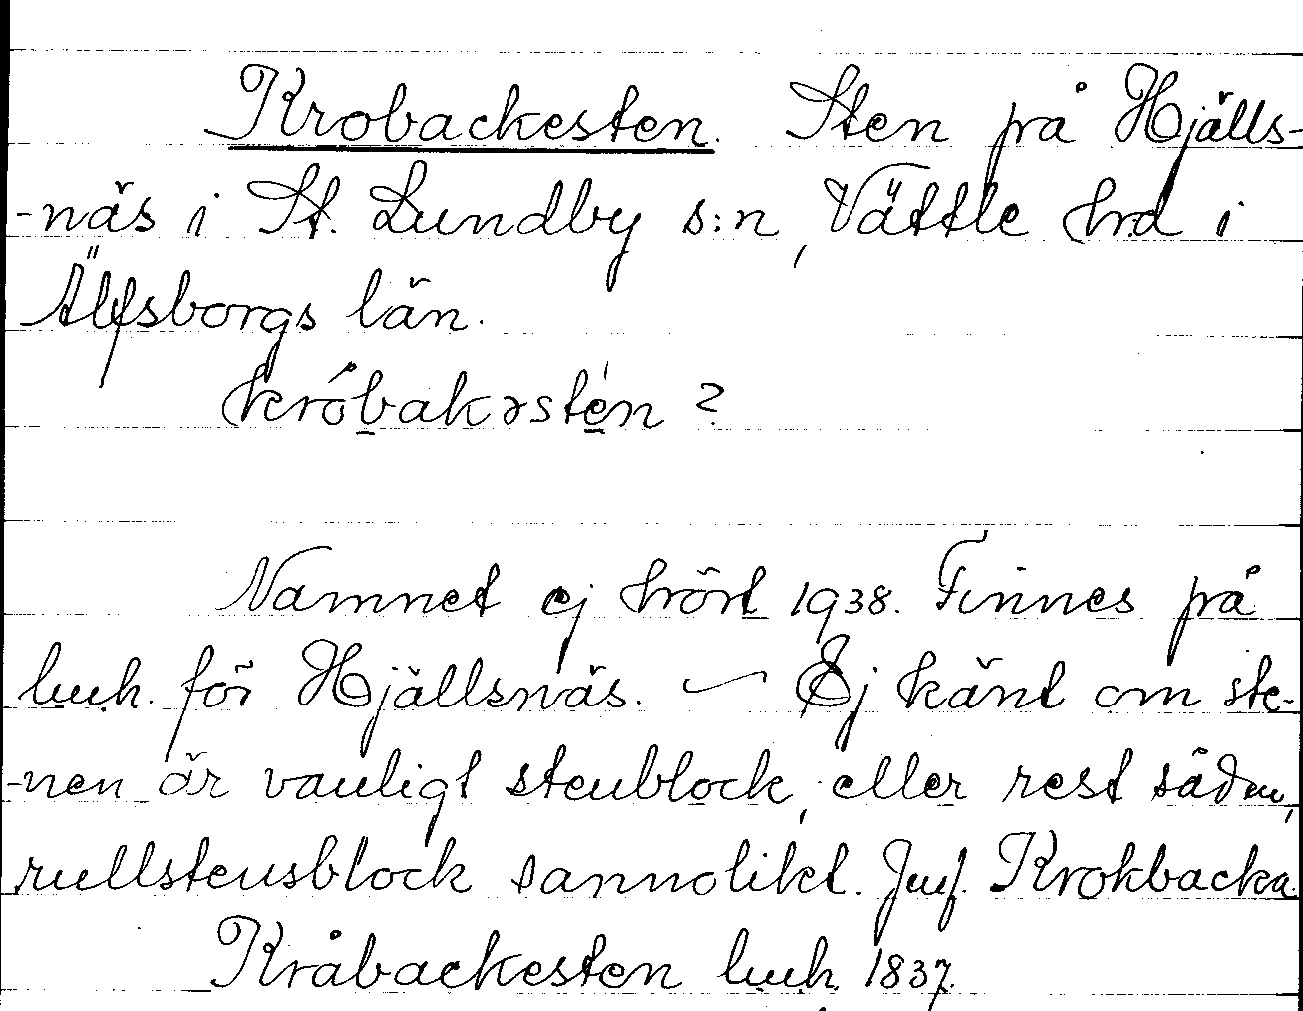 Krobackesten. Sten på Hjälls-
-näs i St. Lundby s:n, Vättle hrd i
Älfsborgs län.
kròbakəstén ?
Namnet ej hört 1938. Finnes på
luh. för Hjällsnäs. – Ej känt om ste-
-nen är vanligt stenblock, eller rest sådan,
rullstensblock sannolikt. Jmf. Krokbacka.
Kråbackesten luh. 1837.